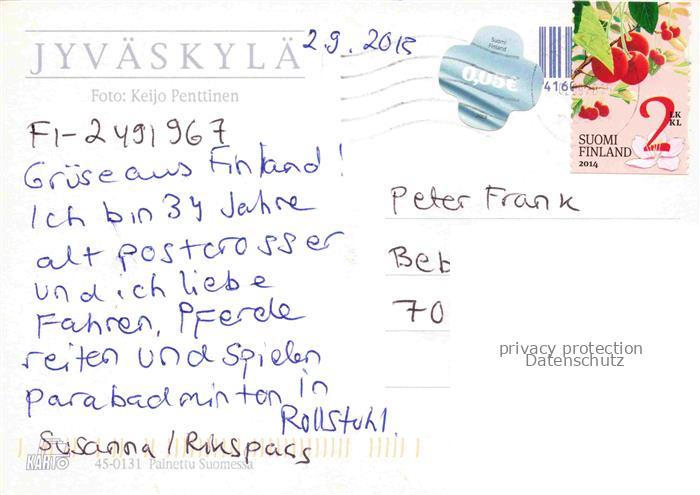 JYVÄSKYLÄ
2.9.2015
Foto: Keijo Penttinen
FI-2491967
Grüse aus Finland!
Ich bin 34 Jahre
alt postcrosser
und ich liebe
Fahren, Pferde
reiten und Spielen
parabadminton in
Rollstuhl.
Susanna /
KARTO
45-0131 Painettu Suomessa
Suomi
Finland
0,05€
4160
2 LK
KL
SUOMI
FINLAND
2014
Peter Frank
Beb
70
privacy protection
Datenschutz